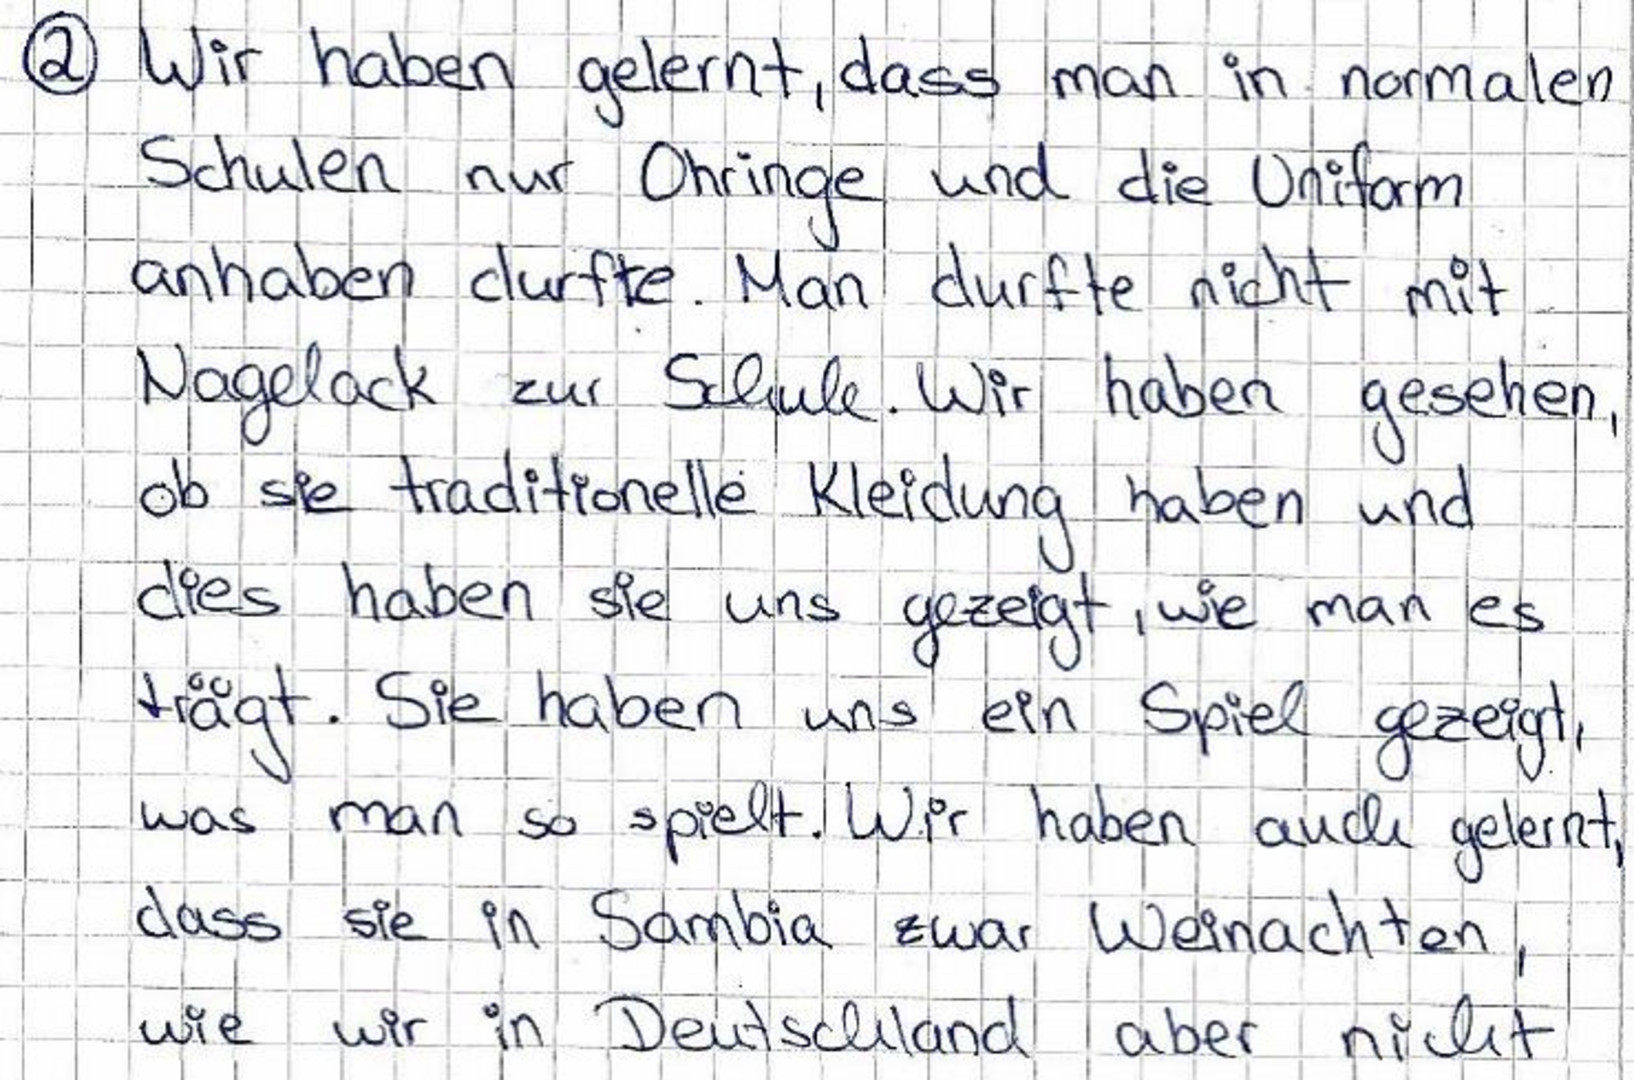 ② Wir haben gelernt, dass man in normalen
Schulen nur Ohringe und die Uniform
anhaben durfte. Man durfte nicht mit
Nagelack zur Schule. Wir haben gesehen,
ob sie traditionelle Kleidung haben und
dies haben sie uns gezeigt, wie man es
trägt. Sie haben uns ein Spiel gezeigt,
was man so spielt. Wir haben auch gelernt,
dass sie in Sambia zwar Weinachten,
wie wir in Deutschland aber nicht